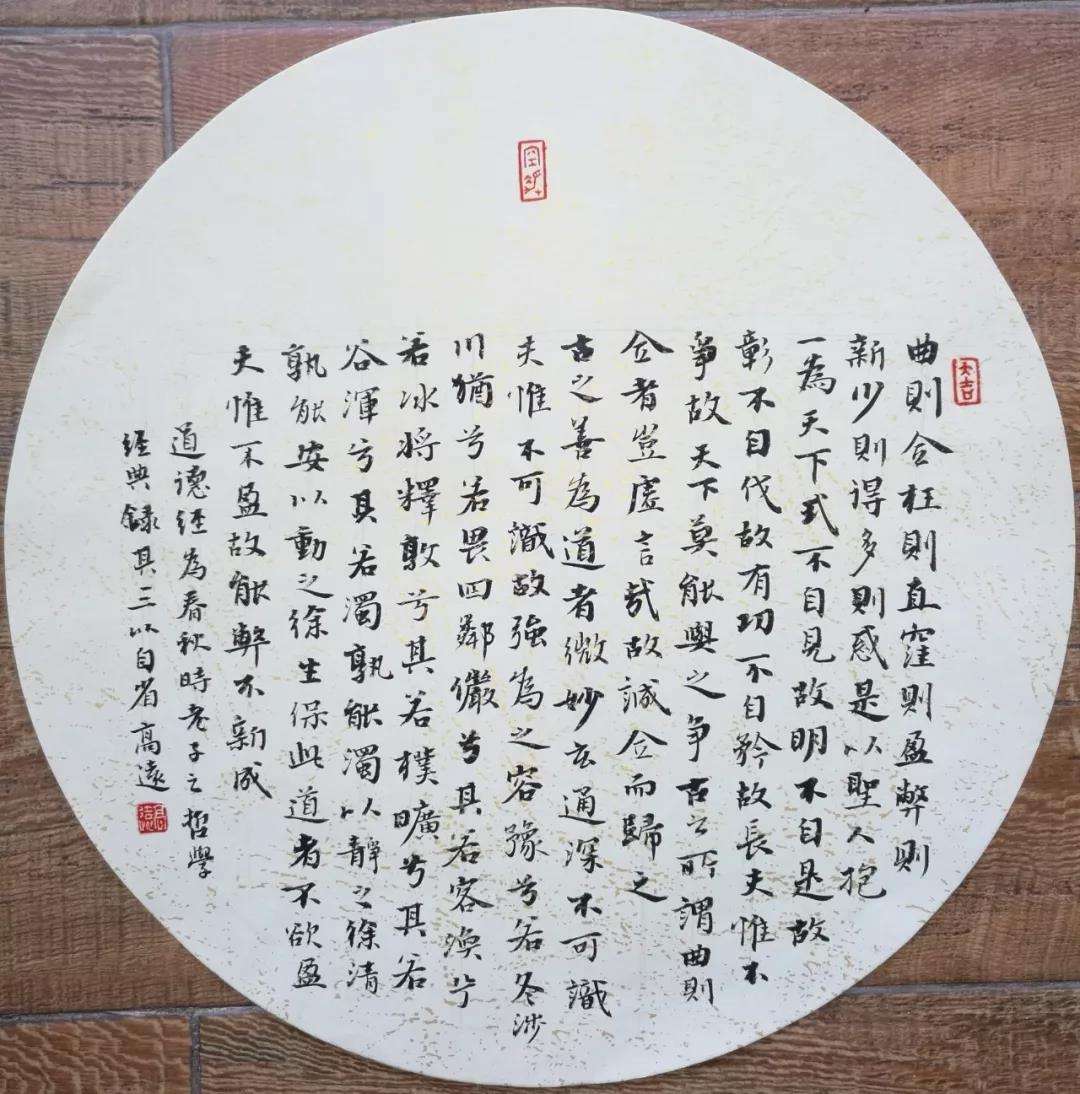 曲則全枉則直窪則盈弊則
新少則得多則惑是以聖人抱
一為天下式不自見故明不自是故
彰不自伐故有功不自矜故長夫惟不
爭故天下莫能與之爭古之所謂曲則
全者豈虛言哉故誠全而歸之
古之善為道者微妙玄通深不可識
夫惟不可識故強為之容豫兮若冬涉
川猶兮若畏四鄰儼兮其若容渙兮
若冰將釋敦兮其若樸曠兮其若
谷渾兮其若濁孰能濁以靜之徐清
孰能安以動之徐生保此道者不欲盈
夫惟不盈故能弊不新成
道德經為春秋時老子之哲學
經典錄其三以自省高遠
高遠